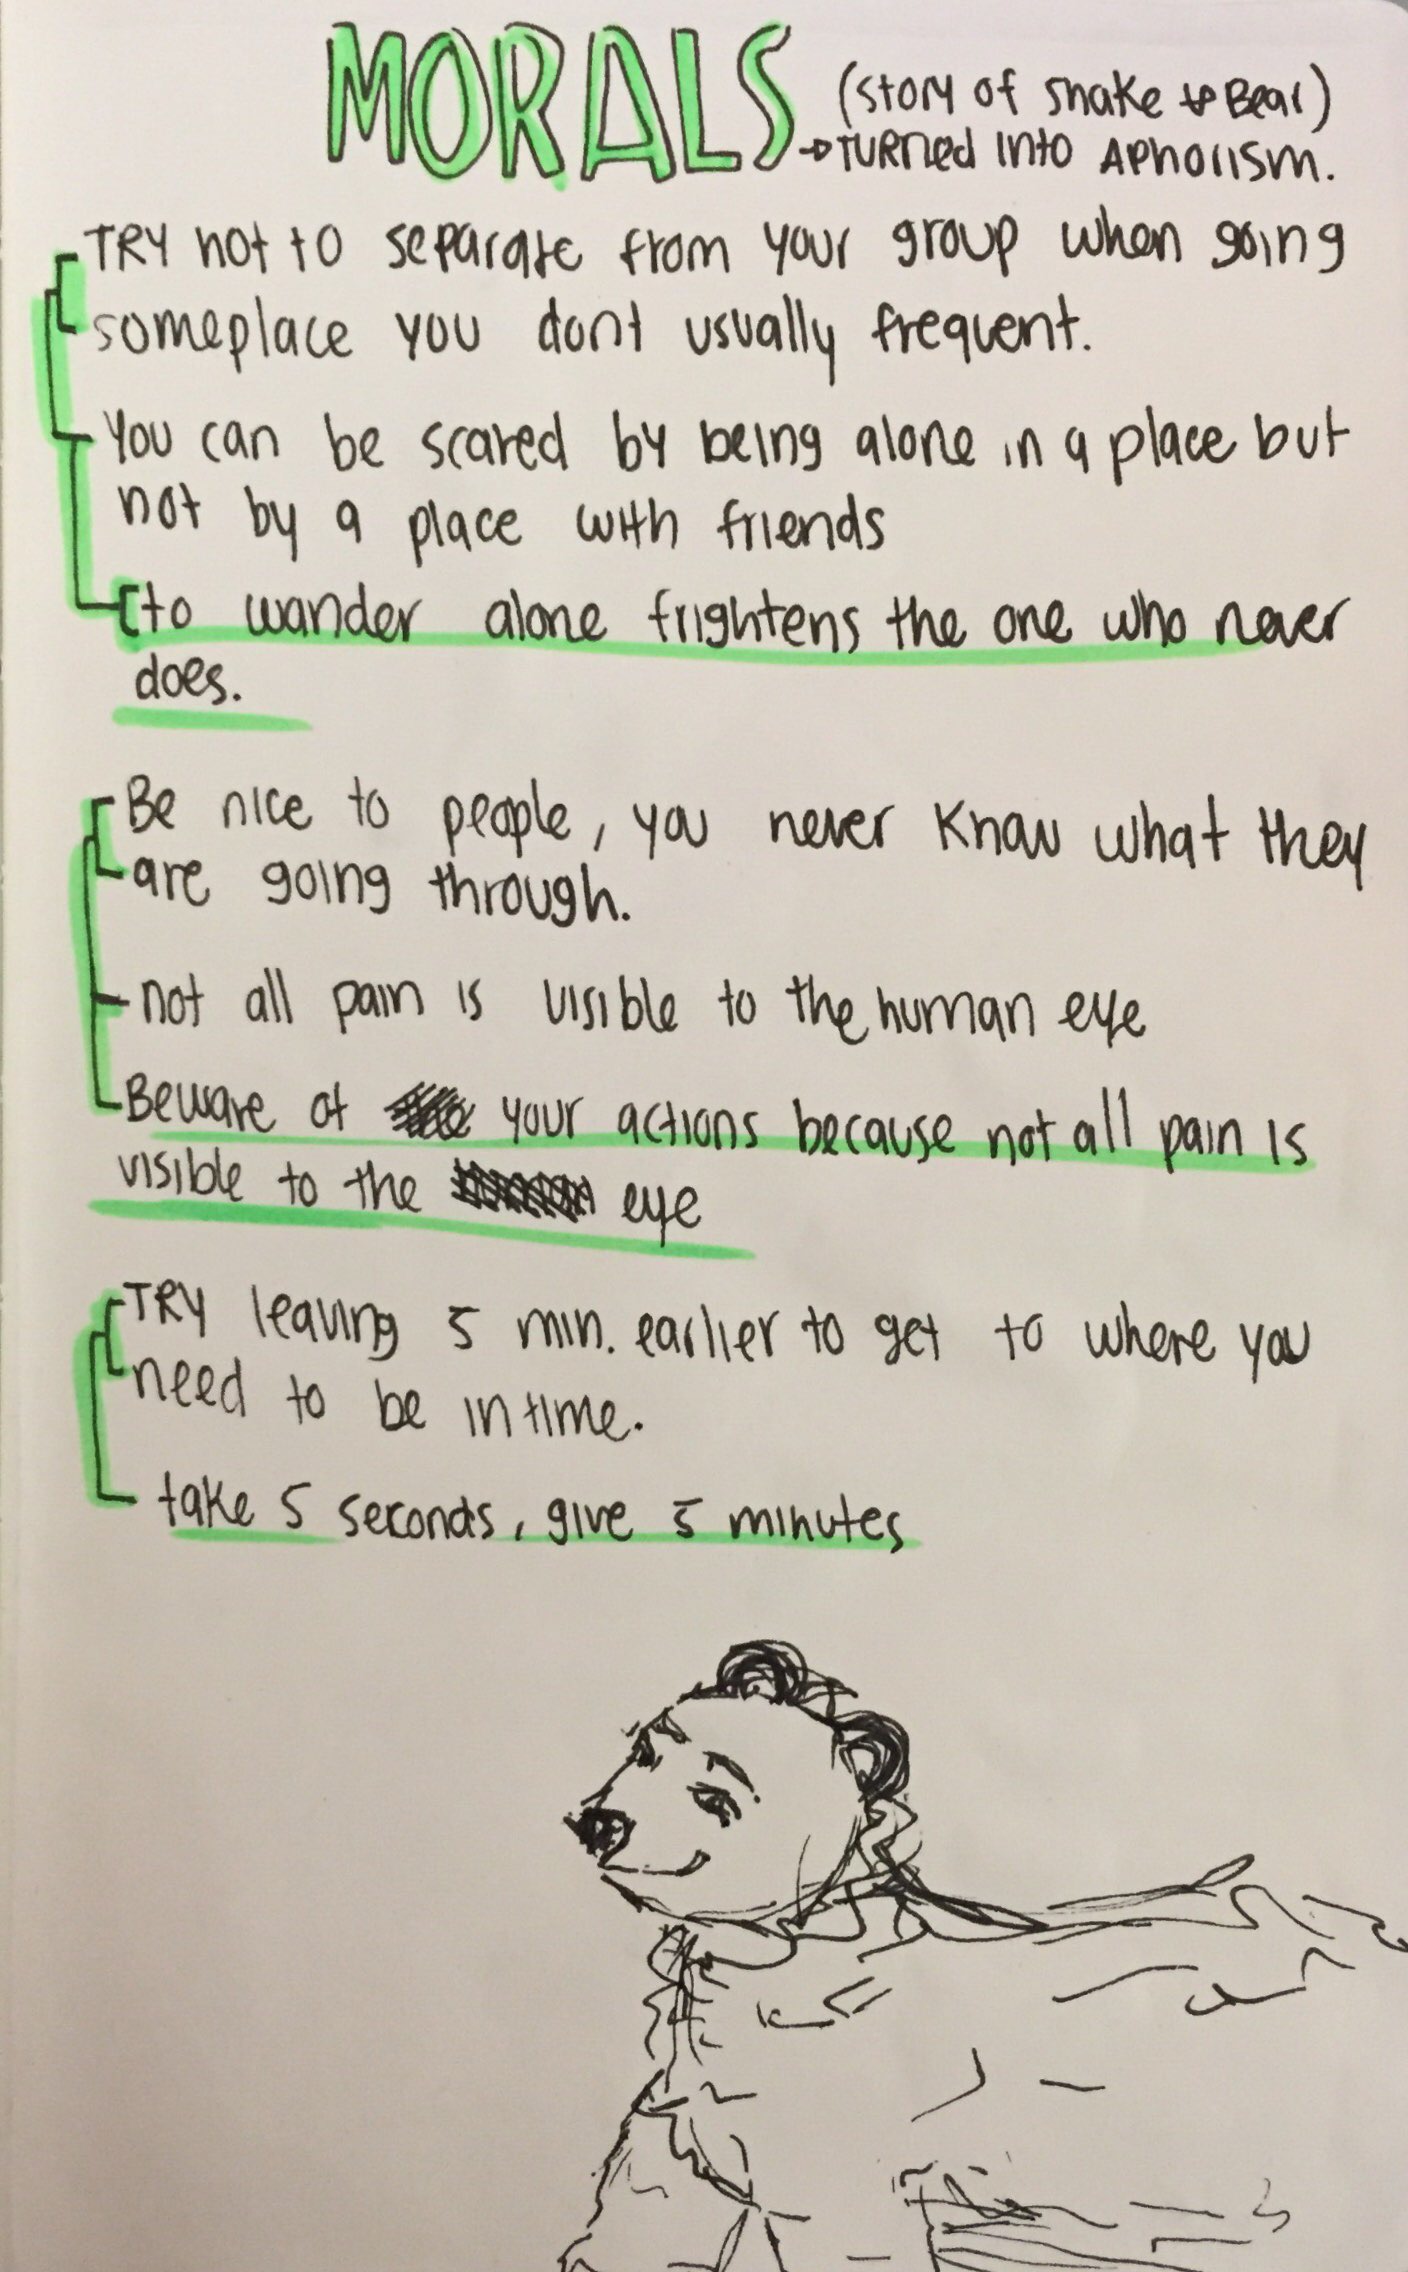 MORALS
(story of snake & Bear)
→ TURNED into APHORISM.
TRY not to separate from your group when going
someplace you dont usually frequent.
You can be scared by being alone in a place but
not by a place with friends
to wander alone frightens the one who never
does.
Be nice to people, you never know what they
are going through.
not all pain is visible to the human eye
Beware of your actions because not all pain is
visible to the eye
TRY leaving 5 min. earlier to get to where you
need to be in time.
take 5 seconds, give 5 minutes